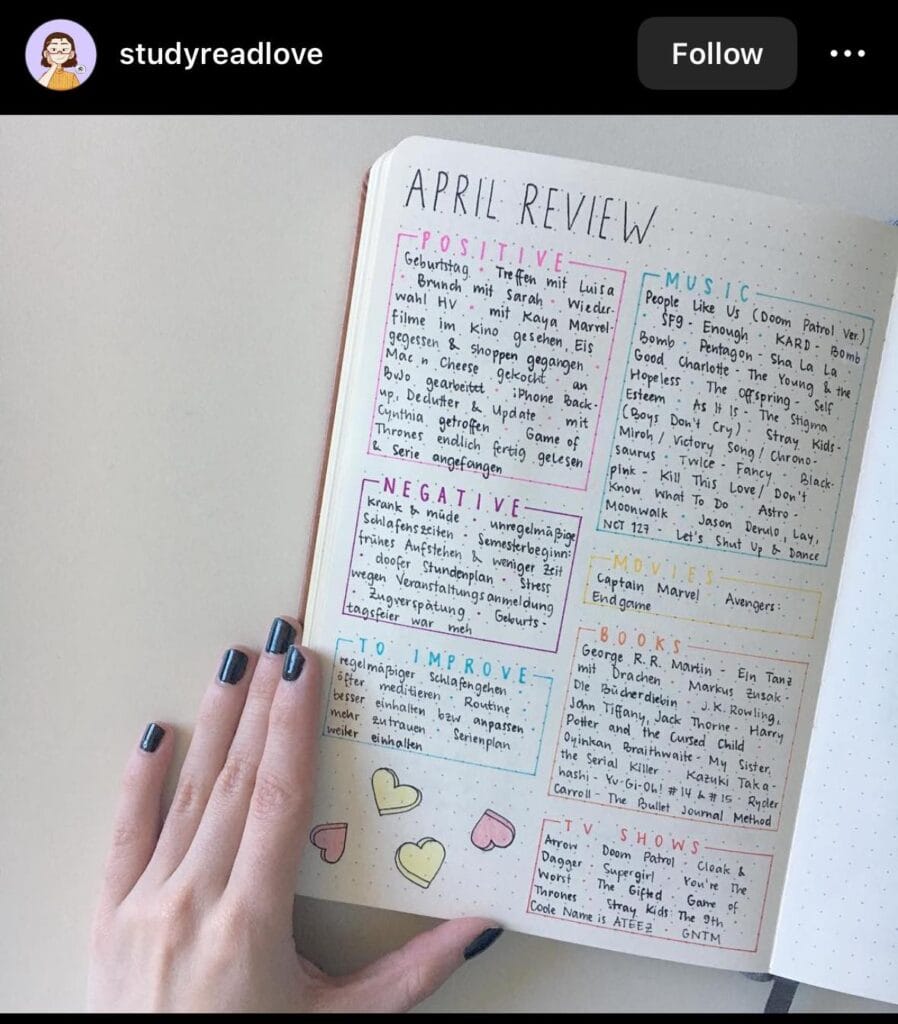 studyreadlove
Follow
APRIL REVIEW
POSITIVE
Geburtstag • Treffen mit Luisa
• Brunch mit Sarah • Wieder-
wahl HV • mit Kaya Marvel-
filme im Kino gesehen, Eis
gegessen & shoppen gegangen •
Mac n Cheese gekocht • an
BuJo gearbeitet • iPhone Back-
up, Declutter & Update • mit
Cynthia getroffen • Game of
Thrones endlich fertig gelesen
& Serie angefangen
NEGATIVE
krank & müde • unregelmäßige
Schlafenszeiten • Semesterbeginn:
frühes Aufstehen & weniger Zeit
• doofer Stundenplan • Stress
wegen Veranstaltungsanmeldung
• Zugverspätung • Geburts-
tagsfeier war meh
TO IMPROVE
regelmäßiger Schlafengehen •
öfter meditieren • Routine
besser einhalten bzw anpassen •
mehr zutrauen • Serienplan
weiter einhalten
MUSIC
People Like Us (Doom Patrol Ver.)
• SF9 - Enough • KARD - Bomb
Bomb • Pentagon - Sha La La •
Good Charlotte - The Young & the
Hopeless • The Offspring - Self
Esteem • As It Is - The Stigma
(Boys Don't Cry) • Stray Kids -
Miroh / Victory Song / Chrono-
saurus • Twice - Fancy • Black-
pink - Kill This Love / Don't
Know What To Do • Astro -
Moonwalk • Jason Derulo, Lay,
NCT 127 - Let's Shut Up & Dance
MOVIES
Captain Marvel • Avengers:
Endgame
BOOKS
George R.R. Martin - Ein Tanz
mit Drachen • Markus Zusak -
Die Bücherdiebin • J.K. Rowling,
John Tiffany, Jack Thorne - Harry
Potter and the Cursed Child •
Oyinkan Braithwaite - My Sister,
the Serial Killer • Kazuki Taka-
hashi - Yu-Gi-Oh! #14 & #15 • Ryder
Carroll - The Bullet Journal Method
TV SHOWS
Arrow • Doom Patrol • Cloak &
Dagger • Supergirl • You're The
Worst • The Gifted • Game of
Thrones • Stray Kids: The 9th •
Code Name is ATEEZ • GNTM